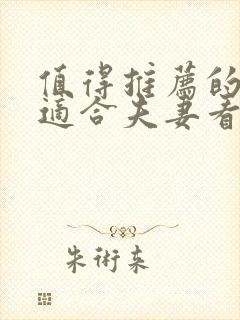 值得推薦的
適合夫妻看
朱術來